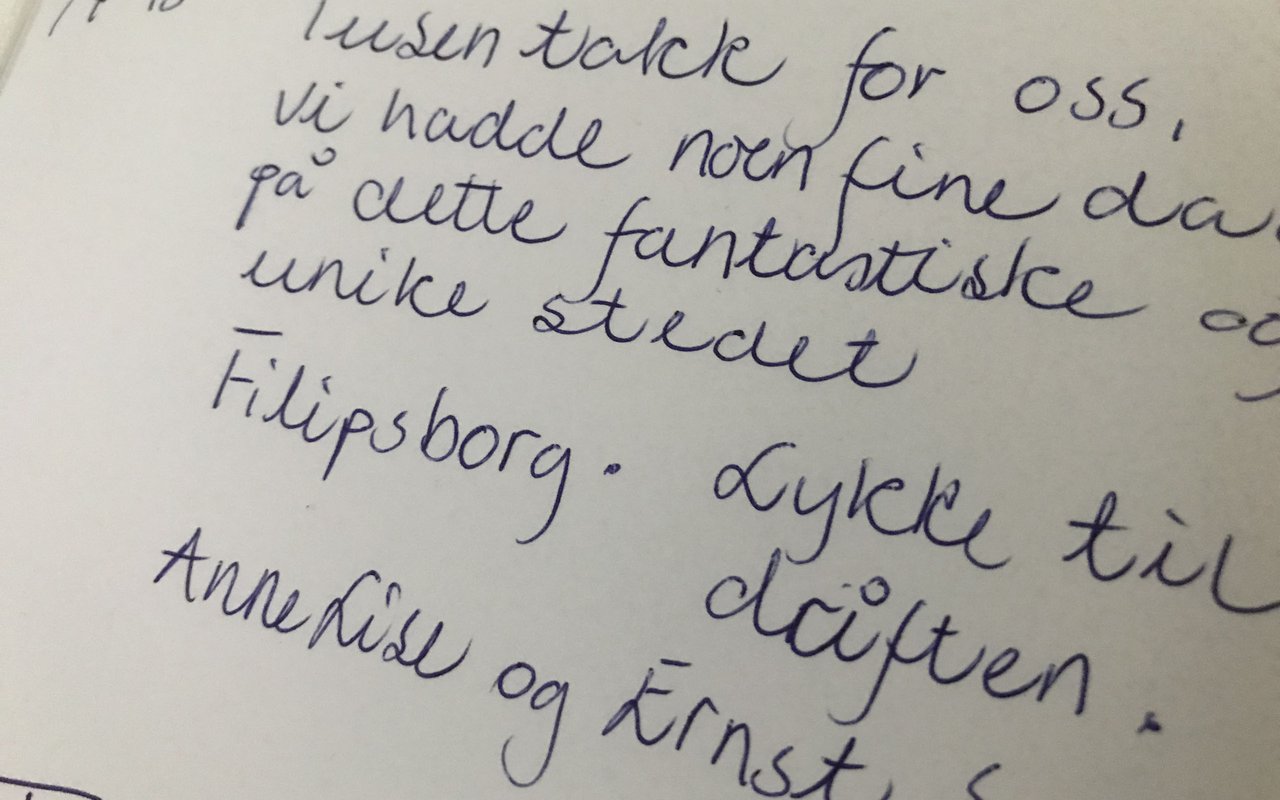 Tusen takk for oss,
vi hadde noen fine da
på dette fantastiske og
unike stedet
Filipsborg. Lykke til
driften.
Anne Lise og Ernst